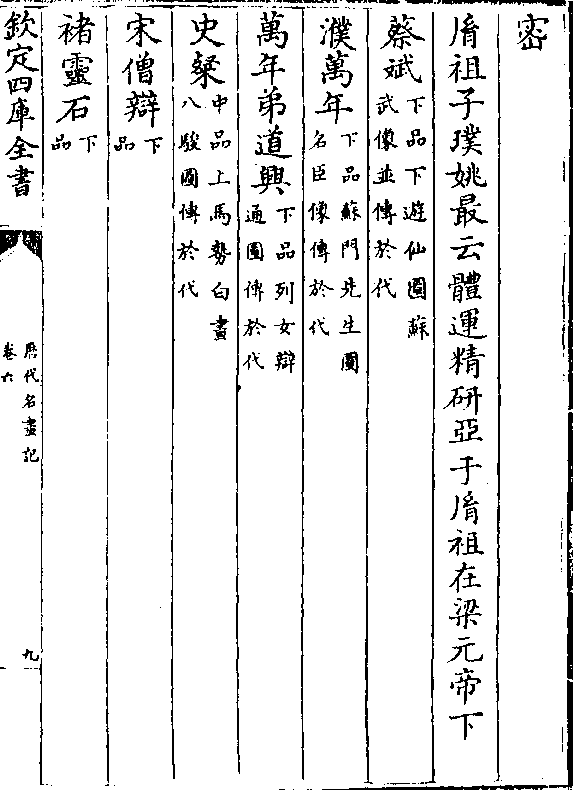 密
𦙍祖子璞姚最云體運精研亞于𦙍祖在梁元帝下
蔡斌下品下遊仙圖蘇武像並傳於代
濮萬年下品蘇門先生圖名臣像傳於代
萬年弟道興下品列女辯通圖傳於代
史粲中品上馬勢白畫八駿圖傳於代
宋僧辯下品
褚靈石下品
欽定四庫全書
歷代名畫記
卷六
九